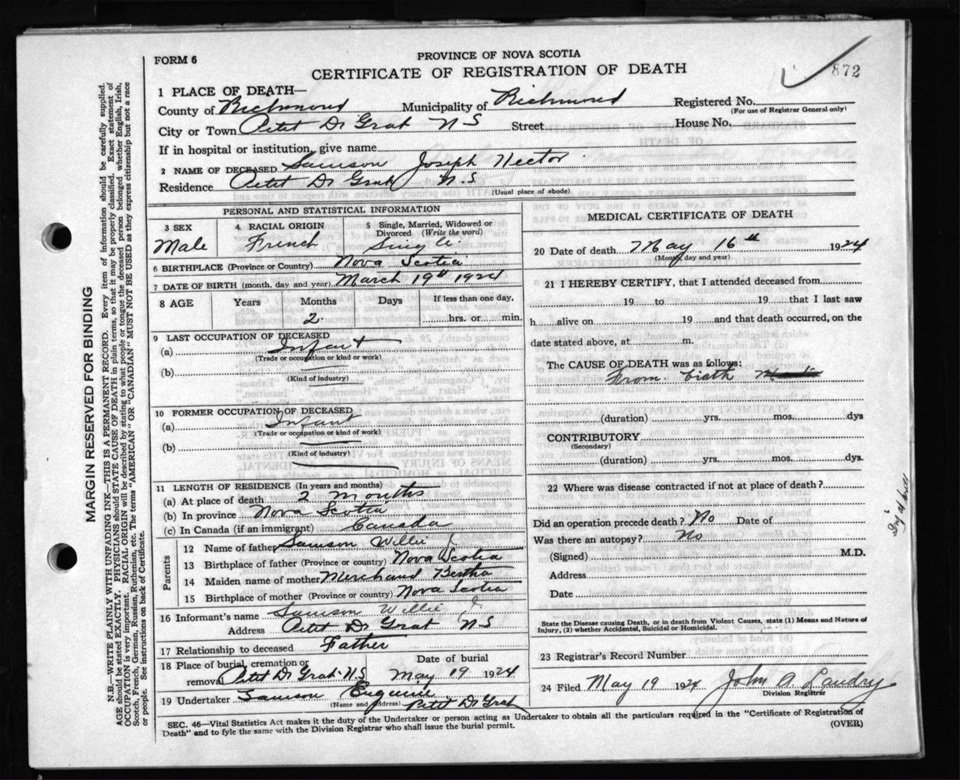 PROVINCE OF NOVA SCOTIA
FORM 6
CERTIFICATE OF REGISTRATION OF DEATH
872
1 PLACE OF DEATH—
County of Richmond Municipality of Richmond Registered No.
(For use of Registrar General only)
City or Town Petit De Grat N S Street House No.
If in hospital or institution, give name
2 NAME OF DECEASED Samson Joseph Hector
Residence Petit De Grat N.S.
(Usual place of abode)
PERSONAL AND STATISTICAL INFORMATION
3 SEX 4 RACIAL ORIGIN 5 Single, Married, Widowed or Divorced (Write the word)
Male French Single
6 BIRTHPLACE (Province or Country) Nova Scotia
7 DATE OF BIRTH (month, day, and year) March 19th 1924
8 AGE Years Months Days If less than one day,
2 hrs. or min.
9 LAST OCCUPATION OF DECEASED
(a) Infant
(Trade or occupation or kind of work)
(b)
(Kind of industry)
10 FORMER OCCUPATION OF DECEASED
(a) Infant
(Trade or occupation or kind of work)
(b)
(Kind of industry)
11 LENGTH OF RESIDENCE (In years and months)
(a) At place of death 2 months
(b) In province Nova Scotia
(c) In Canada (if an immigrant) Canada
Parents
12 Name of father Samson Willie J
13 Birthplace of father (Province or country) Nova Scotia
14 Maiden name of mother Bertha
15 Birthplace of mother (Province or country) Nova Scotia
16 Informant's name Samson Willie J
Address Petit De Grat N.S
17 Relationship to deceased Father
18 Place of burial, cremation or removal Petit De Grat N.S Date of burial May 19 1924
19 Undertaker Samson Petit De Grat
(Name and address)
MEDICAL CERTIFICATE OF DEATH
20 Date of death May 16th 1924
(Month, day and year)
21 I HEREBY CERTIFY, that I attended deceased from
19 to 19 that I last saw
h alive on 19 and that death occurred, on the
date stated above, at m.
The CAUSE OF DEATH was as follows:
From birth
(duration) yrs. mos. dys
CONTRIBUTORY
(Secondary)
(duration) yrs. mos. dys.
22 Where was disease contracted if not at place of death?
Did an operation precede death? No Date of
Was there an autopsy? No
(Signed) M.D.
Address
Date
State the Disease causing Death, or in death from Violent Causes, state (1) Means and Nature of Injury, (2) whether Accidental, Suicidal or Homicidal.
23 Registrar's Record Number
24 Filed May 19 1924 John A Landry
Division Registrar
SEC. 46—Vital Statistics Act makes it the duty of the Undertaker or person acting as Undertaker to obtain all the particulars required in the "Certificate of Registration of
Death" and to fyle the same with the Division Registrar who shall issue the burial permit. (OVER)
MARGIN RESERVED FOR BINDING
N.B.—WRITE PLAINLY WITH UNFADING INK—THIS IS A PERMANENT RECORD. Every item of information should be carefully supplied.
AGE should be stated EXACTLY. PHYSICIANS should STATE CAUSE OF DEATH in plain terms, so that it may be properly classified. Exact statement of
OCCUPATION is very important. RACIAL ORIGIN will be described by stating to what people or tongue the deceased person belonged whether English, Irish,
Scotch, French, German, Russian, Ruthenian, etc. The terms "AMERICAN" OR "CANADIAN" MUST NOT BE USED as they express citizenship but not a race
or people. See instructions on back of Certificate.